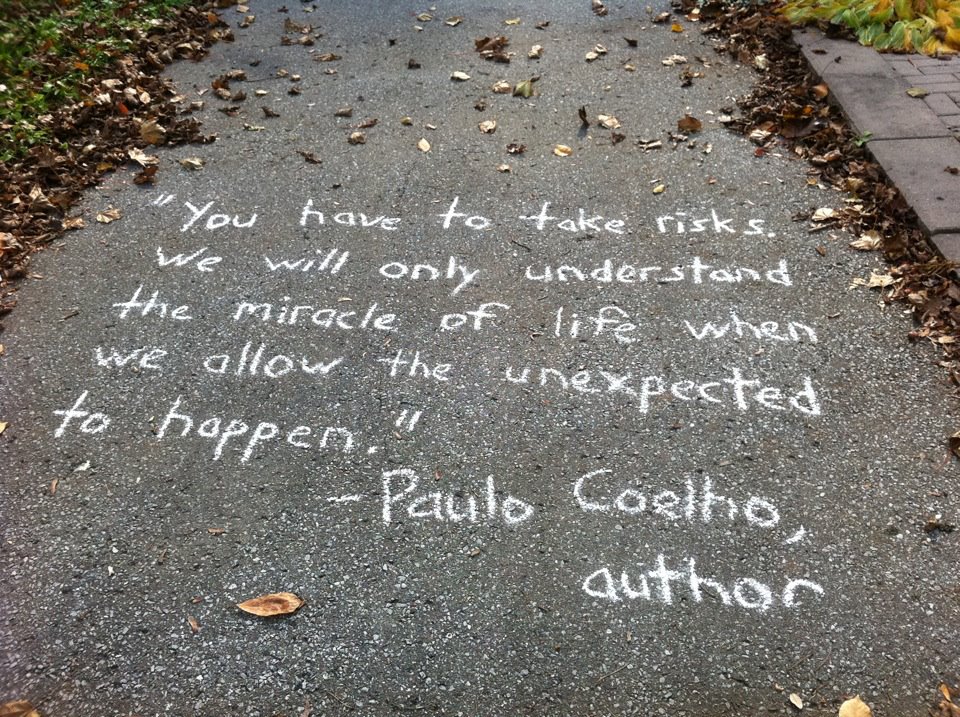 "You have to take risks.
We will only understand
the miracle of life when
we allow the unexpected
to happen."
- Paulo Coelho,
author